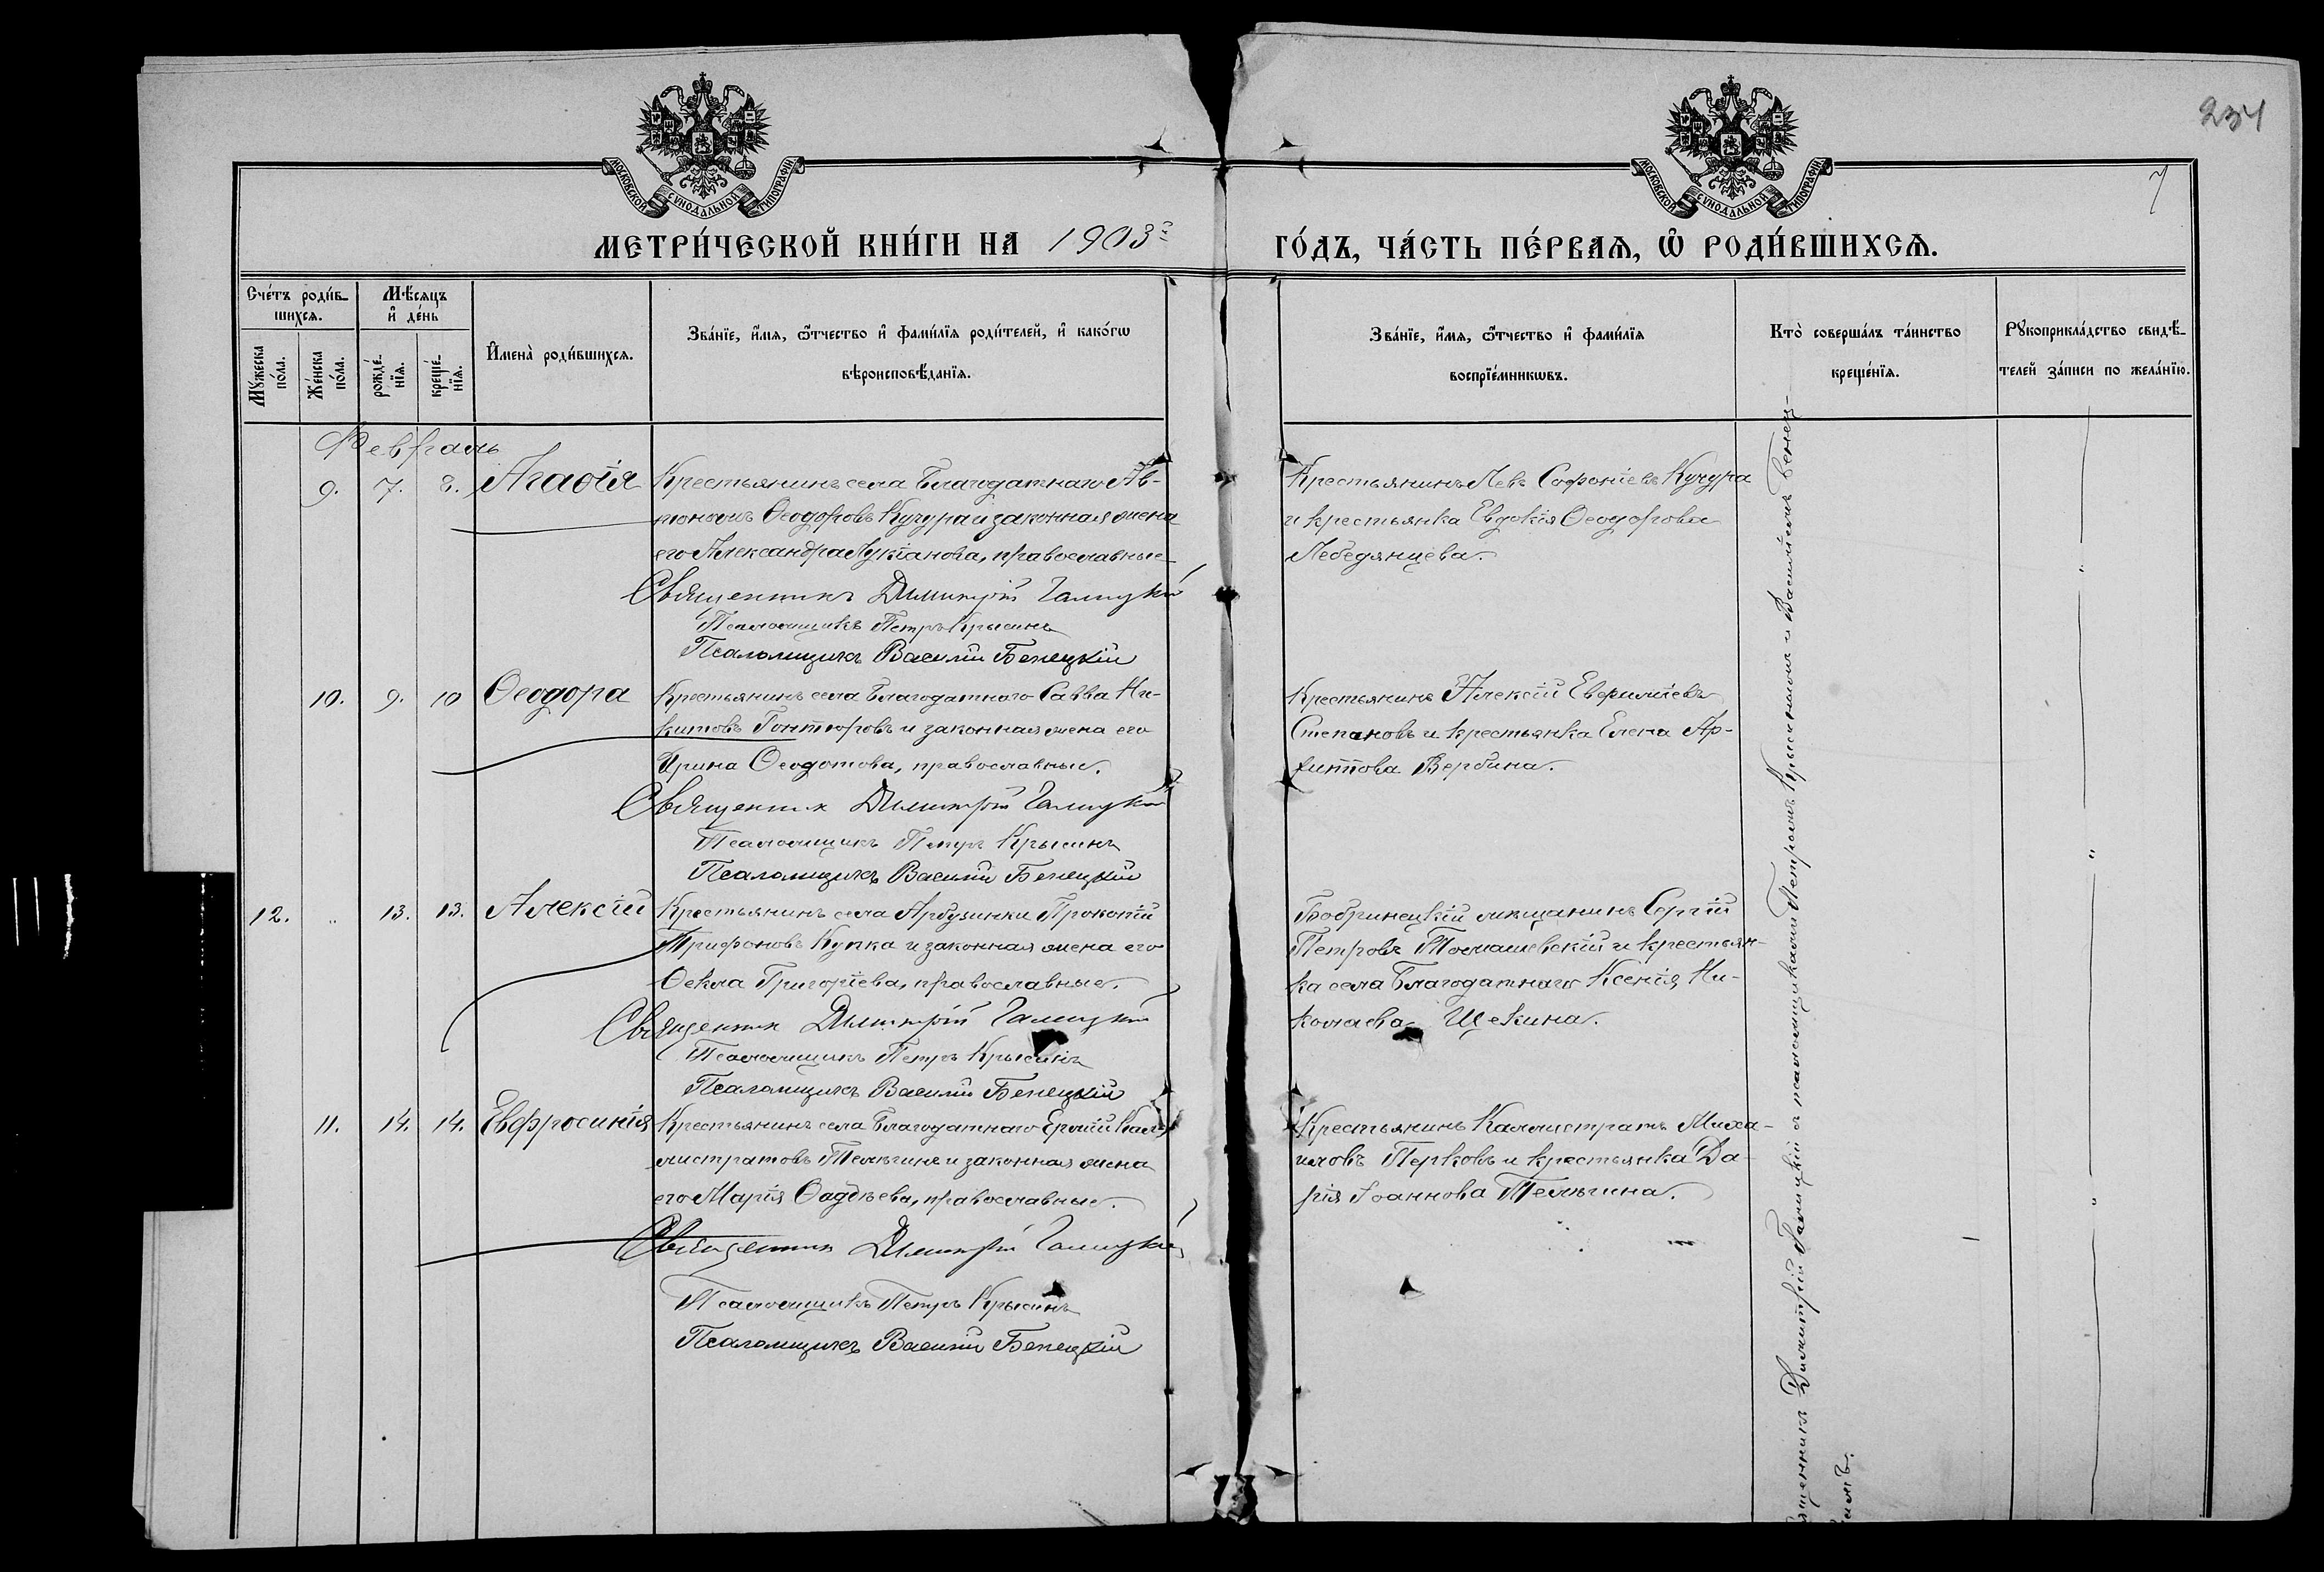 234
7
МОСКОВСКОЙ СѴНОДАЛЬНОЙ ТИПОГРАФІИ
МОСКОВСКОЙ СѴНОДАЛЬНОЙ ТИПОГРАФІИ
МЕТРИ́ЧЕСКОЙ КНИ́ГИ НА 1903 г.
ГО́ДЪ, ЧА́СТЬ ПЕ́РВАѦ, Ѡ҆ РОДИ́ВШИХСѦ.
Сче́тъ роди́в-
шихсѧ.
Мꙋ́жеска
по́ла.
Же́нска
по́ла.
Мѣ́сѧцъ
и҆ де́нь
рожде́-
нїѧ.
креще́-
нїѧ.
И҆мена̀ роди́вшихсѧ.
Зва́нїе, и҆́мѧ, ѻ҆́тчество и҆ фами́лїѧ роди́телей, и҆ како́гѡ
вѣроисповѣ́данїѧ.
Зва́нїе, и҆́мѧ, ѻ҆́тчество и҆ фами́лїѧ
воспрїе́мникѡвъ.
Кто̀ соверша́лъ та́инство
креще́нїѧ.
Рꙋкоприкла́дство свидѣ́-
телей за́писи по жела́нїю.
Февраль
9. 7. 8. Агаѳія
Крестьянинъ села Благодатнаго Ав-
тономъ Ѳеодоровъ Кучура и законная жена
его Александра Лукіанова, православные
Священникъ Димитрій Галицкій
Псаломщикъ Петръ Крысинъ
Псаломщикъ Василій Бенецкій
Крестьянинъ Левъ Софоніевъ Кучура
и крестьянка Евдокія Ѳеодорова
Лебедянцева.
10. 9. 10 Ѳеодора
Крестьянинъ села Благодатного Савва Ни-
китовъ Гонтюровъ и законная жена его
Ирина Ѳеодотова, православные.
Священник Димитрій Галицкій
Псаломщикъ Петръ Крысинъ
Псаломщикъ Василій Бенецкій
Крестьянинъ Алексій Евфиміевъ
Степановъ и крестьянка Елена Ар-
хиппова Вербина.
12. " 13. 13. Алексій
Крестьянинъ села Арбузинки Прокопій
Трифоновъ Купка и законная жена его
Ѳекла Григоріева, православные.
Священник Димитрій Галицкій
Псаломщикъ Петръ Крысинъ
Псаломщикъ Василій Бенецкій
Бобринецкій мѣщанинъ Сергій
Петровъ Томашевскій и крестьян-
ка села Благодатнаго Ксенія Ни-
колаева Щекина.
11. 14. 14. Евфросинія
Крестьянинъ села Благодатнаго Ермій Кал-
листратовъ Телѣгинъ и законная жена
его Марія Ѳаддѣева, православные.
Священник Димитрій Галицкій
Псаломщикъ Петръ Крысинъ
Псаломщикъ Василій Бенецкій
Крестьянинъ Каллистратъ Миха-
иловъ Перковъ и крестьянка Да-
рія Іоаннова Телѣгина.
Священникъ Димитрій Галицкій съ псаломщиками Петромъ Крысинымъ и Василіемъ Бенец-
кимъ.